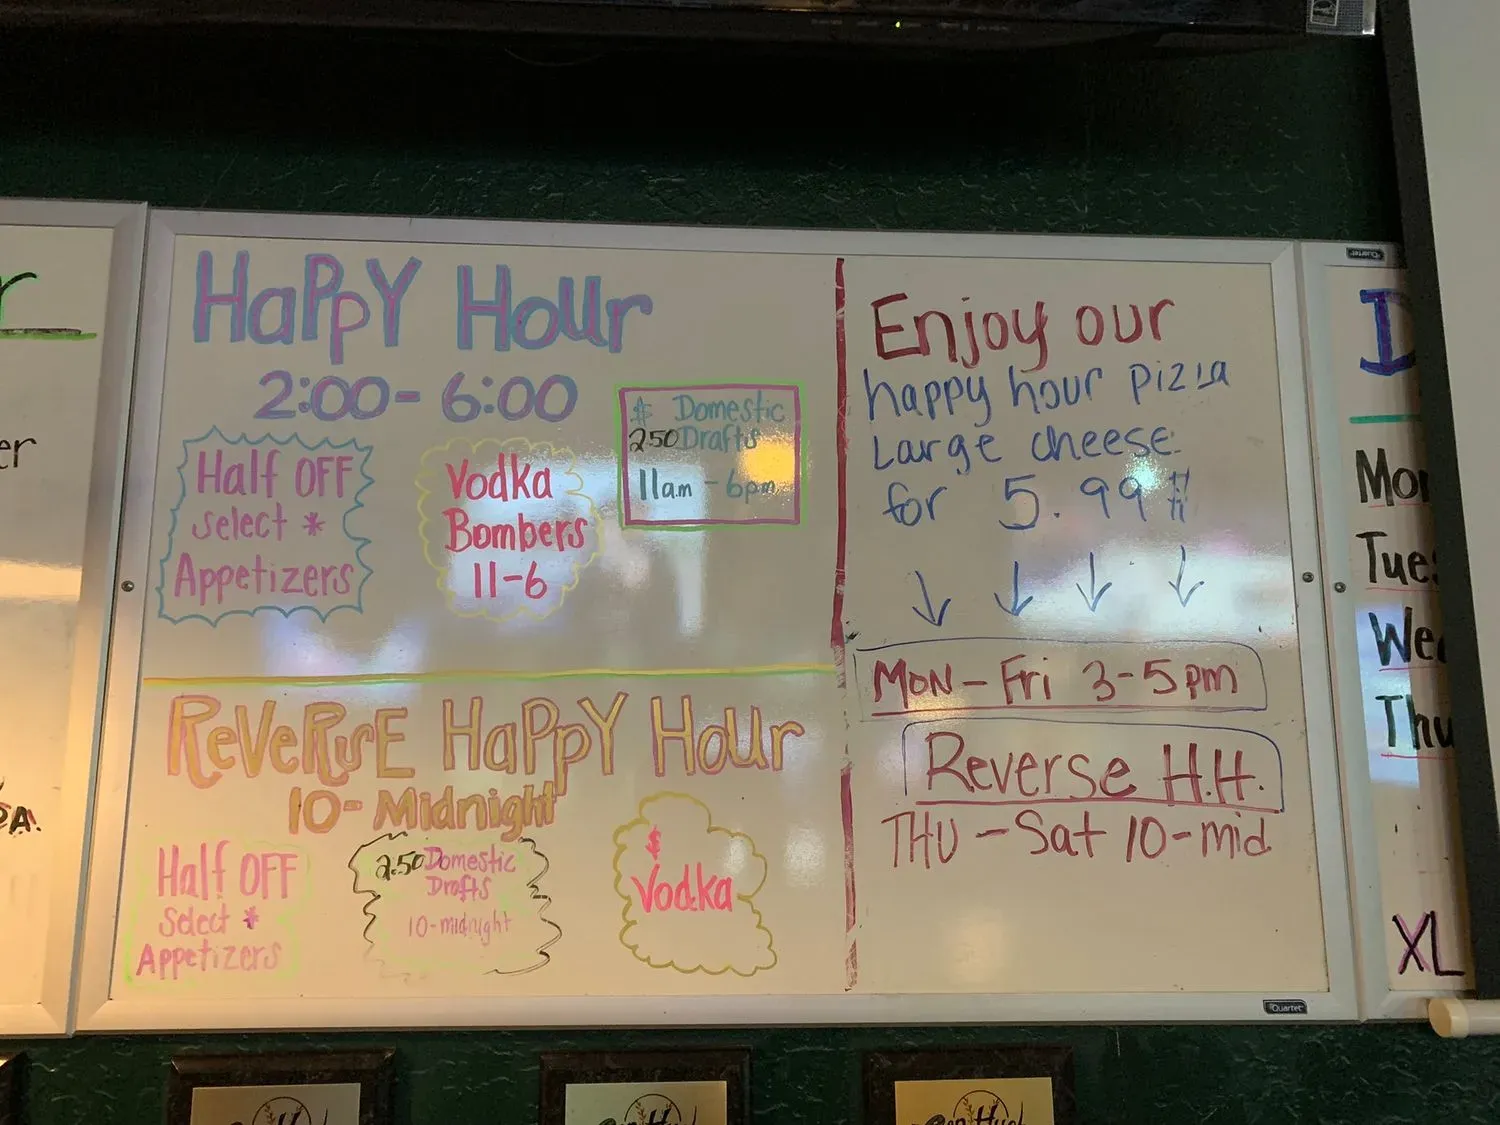 HaPpY Hour
2:00-6:00
Half OFF
select *
Appetizers
Vodka
Bombers
11-6
$ Domestic
2.50 Drafts
11am - 6pm
ReVeRsE HaPpY Hour
10-Midnight
Half OFF
Select *
Appetizers
2.50 Domestic
Drafts
10-midnight
$
Vodka
Enjoy our
happy hour pizza
Large cheese
for 5.99!!
MON - Fri 3-5pm
Reverse H.H.
THU - Sat 10-mid
er
Mon
Tues
Wed
Thu
XL
Quartet
Quartet